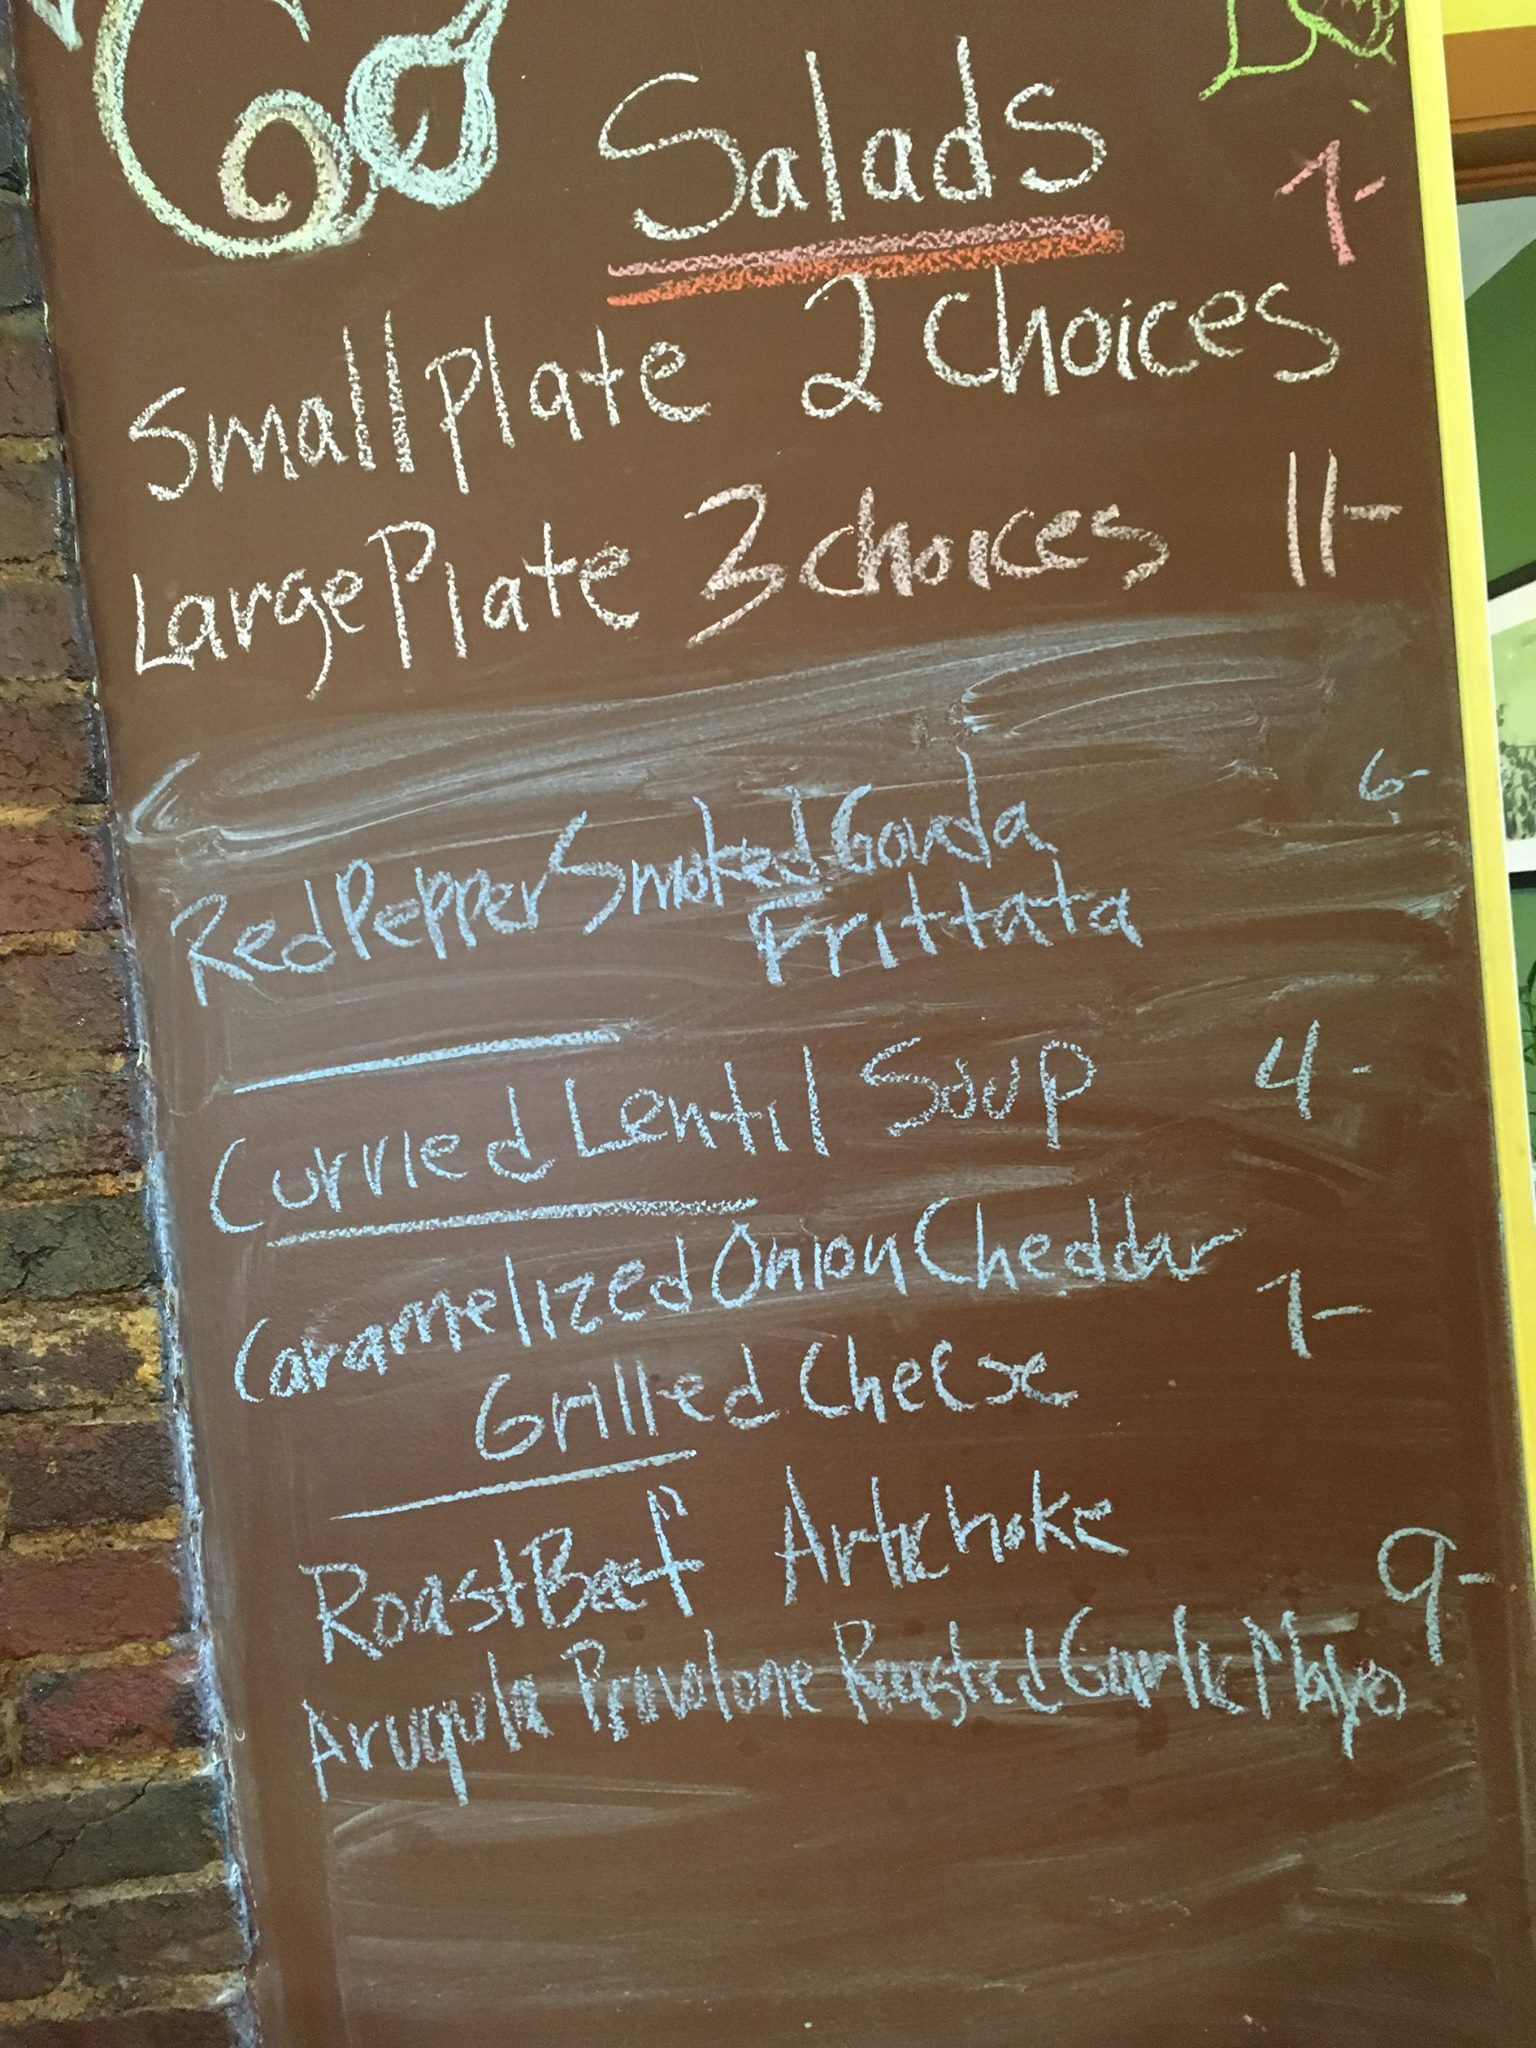 Salads
7-
Small Plate 2 Choices
Large Plate 3 choices 11-
Red Pepper Smoked Gouda 6-
Frittata
Curried Lentil Soup 4-
Caramelized Onion Cheddar
Grilled Cheese 7-
Roast Beef Artichoke
Arugula Provolone Roasted Garlic Mayo 9-